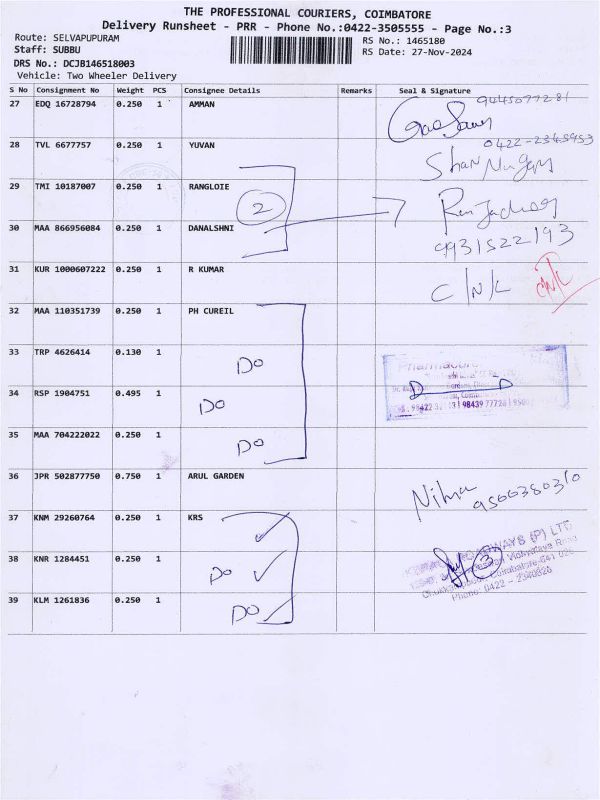 THE PROFESSIONAL COURIERS, COIMBATORE
Delivery Runsheet - PRR - Phone No.:0422-3505555 - Page No.:3
Route: SELVAPUPURAM
RS No.: 1465180
Staff: SUBBU
RS Date: 27-Nov-2024
DRS No.: DCJB146518003
Vehicle: Two Wheeler Delivery
S No Consignment No Weight PCS Consignee Details Remarks Seal & Signature
27 EDQ 16728794 0.250 1 AMMAN
28 TVL 6677757 0.250 1 YUVAN
29 TMI 10187007 0.250 1 RANGLOIE
2
30 MAA 866956084 0.250 1 DANALSHNI
9931522193
31 KUR 1000607222 0.250 1 R KUMAR
C/N/L
32 MAA 110351739 0.250 1 PH CUREIL
33 TRP 4626414 0.130 1 Do
34 RSP 1904751 0.495 1 Do
35 MAA 704222022 0.250 1 Do
36 JPR 502877750 0.750 1 ARUL GARDEN
9500380310
37 KNM 29260764 0.250 1 KRS
38 KNR 1284451 0.250 1 Do
39 KLM 1261836 0.250 1 Do
Phone: 0422 - 2340626